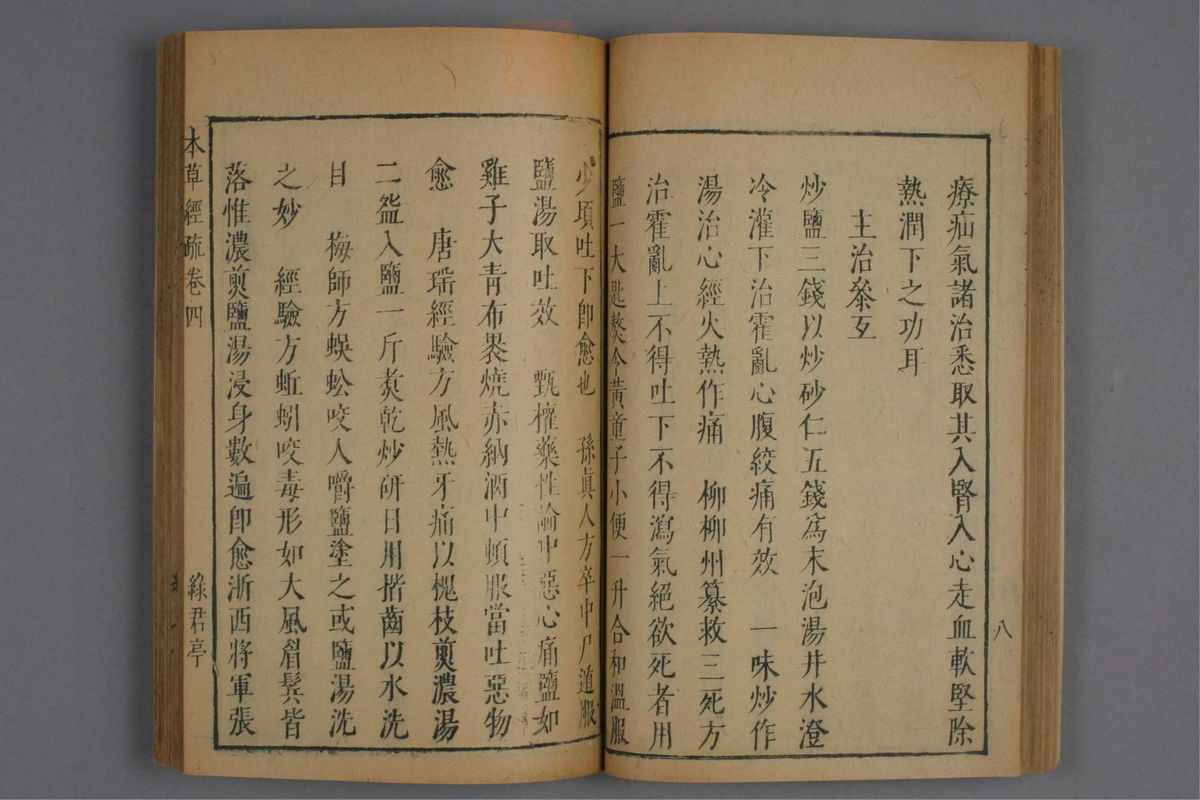 療疝氣諸治悉取其入腎入心走血軟堅除
熱潤下之功耳
主治叅互
炒鹽三錢以炒砂仁五錢爲末泡湯井水澄
冷灌下治霍亂心腹絞痛有效　一味炒作
湯治心經火熱作痛　柳柳州纂救三死方
治霍亂上不得吐下不得瀉氣絕欲死者用
鹽一大匙熬令黃童子小便一升合和溫服
少頃吐下卽愈也　孫眞人方卒中尸遁服
鹽湯取吐效　甄權藥性論中惡心痛鹽如
雞子大青布裹燒赤納酒中頓服當吐惡物
愈　唐瑤經驗方風熱牙痛以槐枝煎濃湯
二盌入鹽一斤煑乾炒研日用揩齒以水洗
目　梅師方蜈蚣咬人嚼鹽塗之或鹽湯洗
之妙　經驗方蚯蚓咬毒形如大風眉鬂皆
落惟濃煎鹽湯浸身數遍卽愈浙西將軍張
八
本草經疏卷四
綠君亭